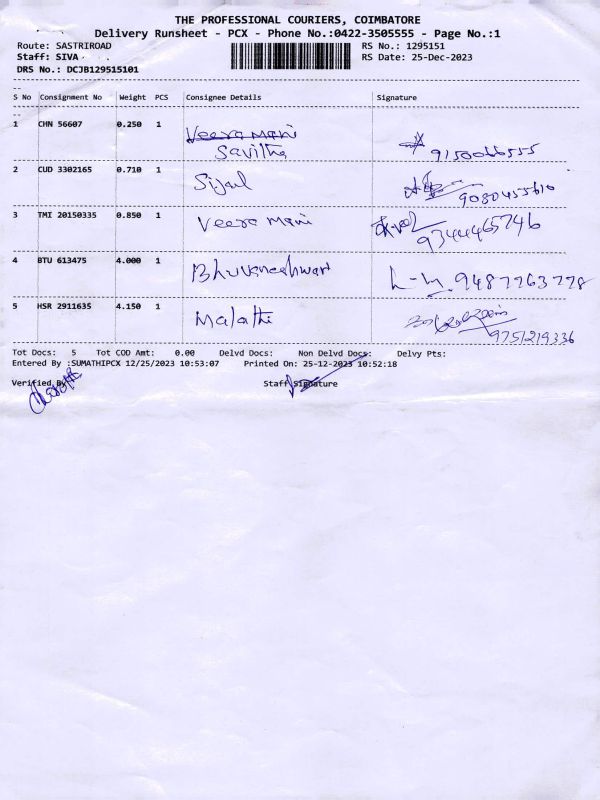 THE PROFESSIONAL COURIERS, COIMBATORE
Delivery Runsheet - PCX - Phone No.:0422-3505555 - Page No.:1
Route: SASTRIROAD RS No.: 1295151
Staff: SIVA RS Date: 25-Dec-2023
DRS No.: DCJB129515101
S No Consignment No Weight PCS Consignee Details Signature
1 CHN 56607 0.250 1 Veera Mani
Savitha 9150066555
2 CUD 3302165 0.710 1 Sijail 9080455610
3 TMI 20150335 0.850 1 Veera Mani 9344465746
4 BTU 613475 4.000 1 Bhuvaneshwari 9487763778
5 HSR 2911635 4.150 1 Malathi
9751219336
Tot Docs: 5 Tot COD Amt: 0.00 Delvd Docs: Non Delvd Docs: Delvy Pts:
Entered By :SUMATHIPCX 12/25/2023 10:53:07 Printed On: 25-12-2023 10:52:18
Verified By Staff Signature